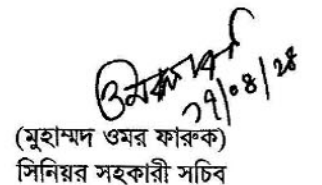 ওমর ফারুক
২৭/০৪/২৪
(মুহাম্মদ ওমর ফারুক)
সিনিয়র সহকারী সচিব